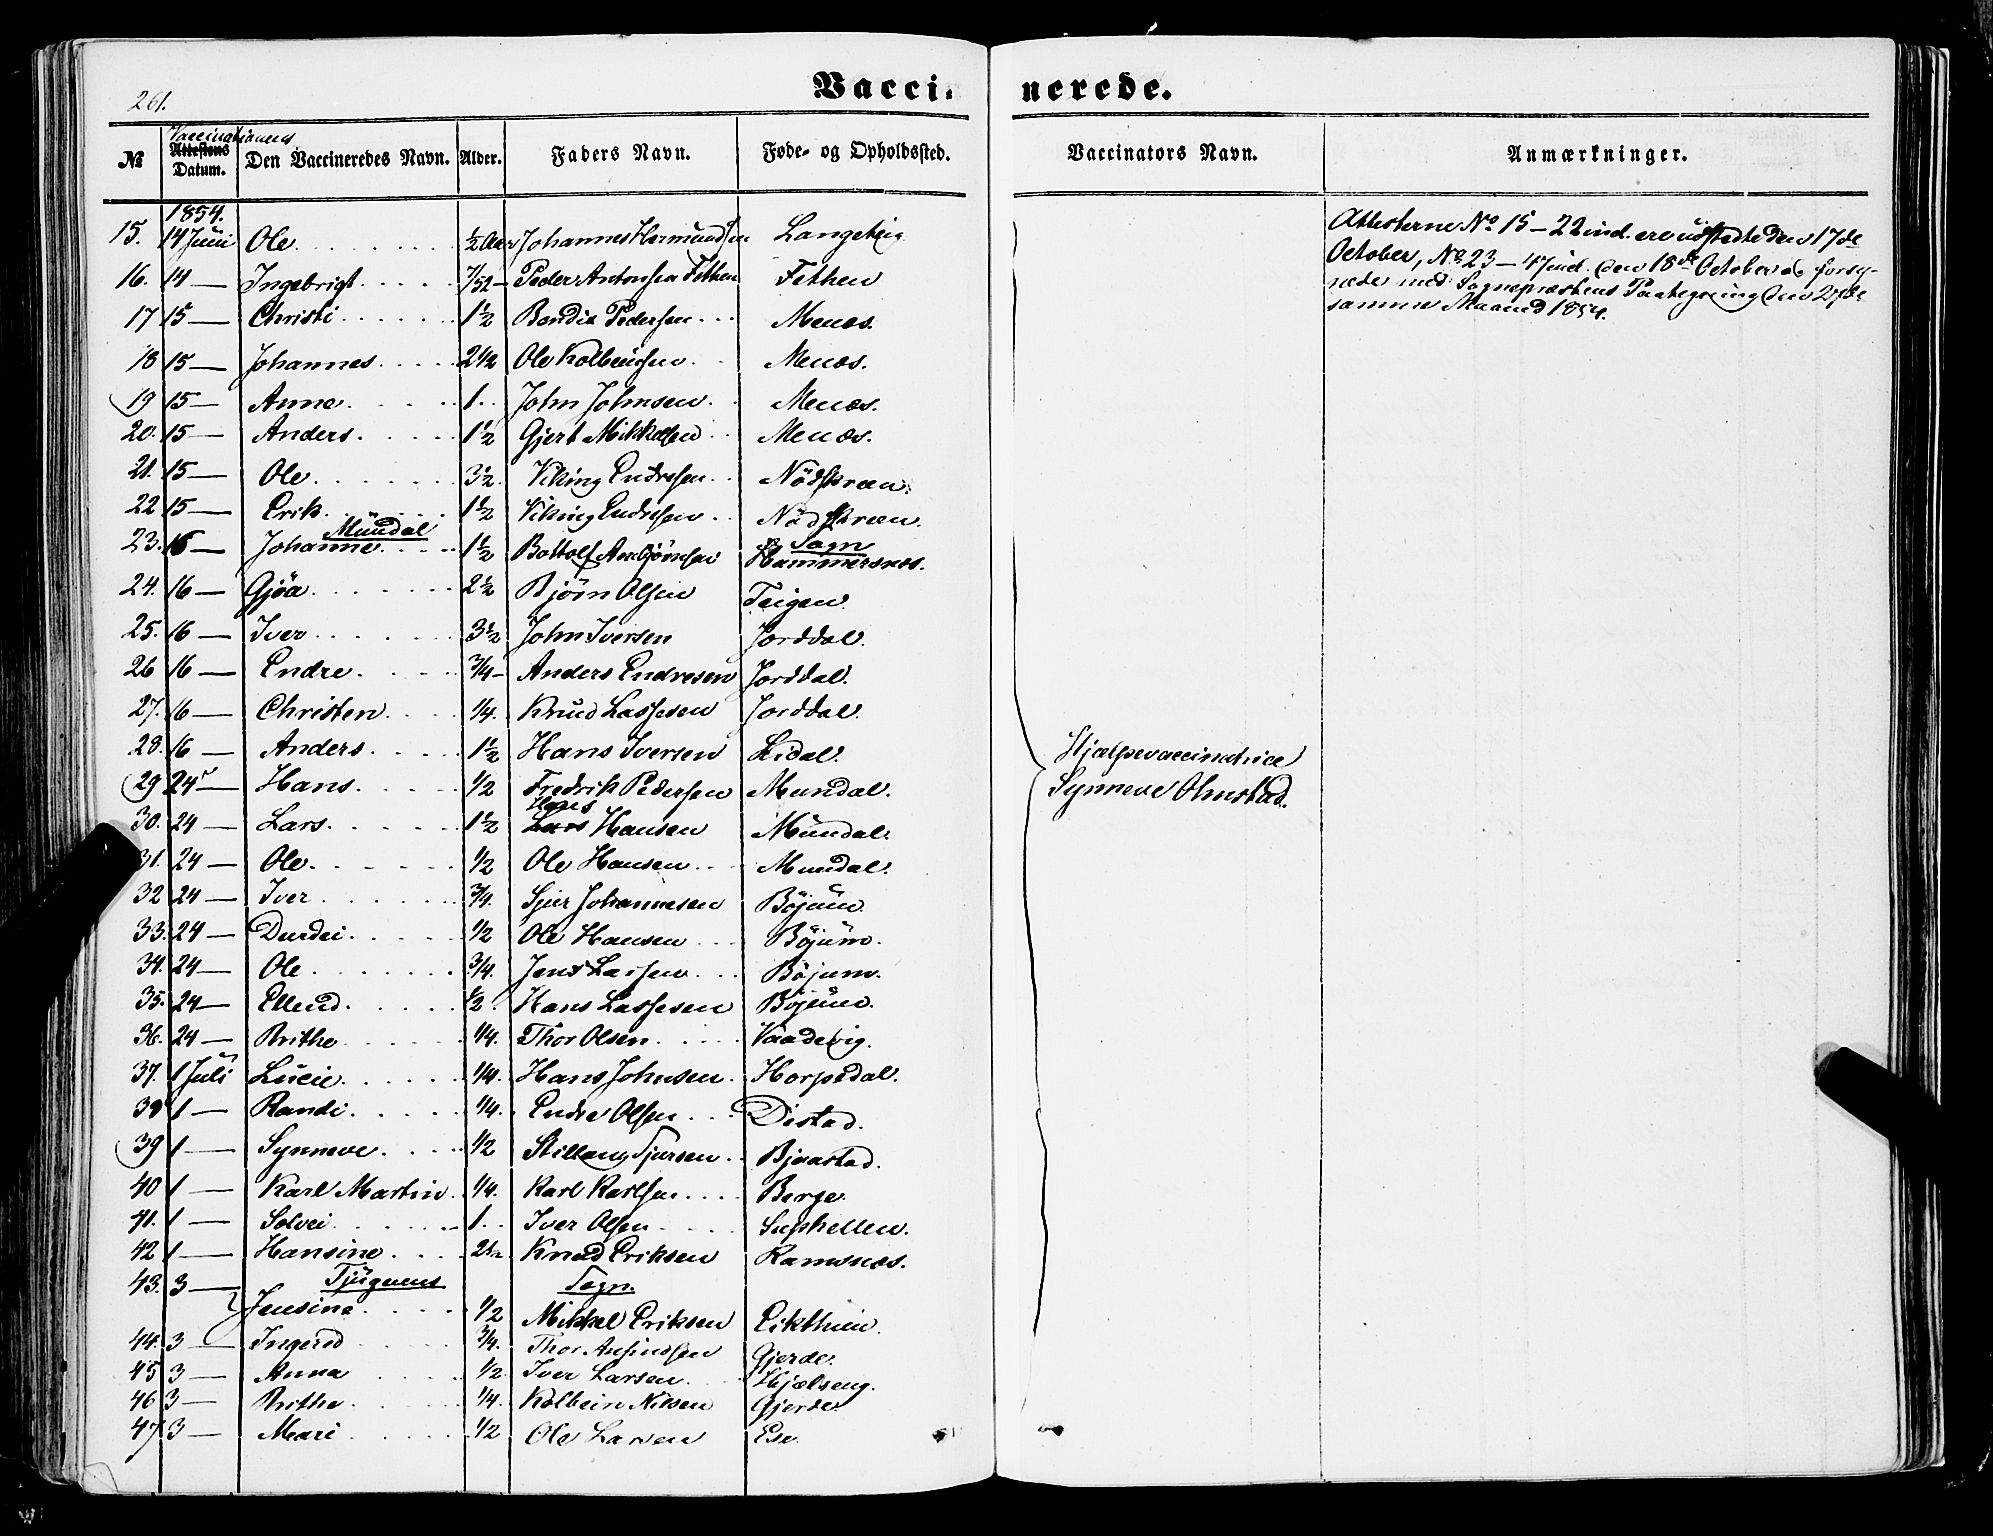 261.
Vaccinerede.
Vaccinationens
№ Attestens Datum. Den Vaccineredes Navn. Alder. Faders Navn. Føde- og Opholdssted. Vaccinators Navn. Anmærkninger.
1854.
15. 14 Juni Ole ½ Aar Johannes Hermundsen
16. 14 — Ingebrigt 7/52 — Peder Antonsen Fethen Fethen
17 15 — Christi 1½ Bendix Pedersen Menæs.
18 15 — Johannes 2½ Ole Kolbeinsen Menæs.
19 15 — Anne 1 John Johnsen Menæs.
20. 15 — Anders 1½ Gjert Mikkelsen Menæs.
21. 15 — Ole 3½ Viking Endresen
22 15 — Erik 1½ Viking Endresen
Mundal Sogn
23. 16 — Johanne 1½ Bottolf Hammersnæs.
24. 16 — Gjöa 2½ Bjørn Olsen Teigen
25. 16 — Iver 3½ John Iversen Jorddal.
26 16 — Endre ¾ — Anders Endresen Jorddal.
27. 16 — Christen ¼ Knud Lassesen Jorddal.
28. 16 — Anders 1½ Hans Iversen Lidal.
29 24 — Hans ½ Fredrik Pedersen Mundal.
Hans
30. 24 — Lars 1½ Lars Hansen Mundal.
31. 24 — Ole ½ Ole Hansen Mundal.
32 24 — Iver ¾ Sjur Johannesen Böjum
33. 24 — Durdei ½ Ole Hansen Böjum.
34. 24 — Ole ¾ Jens Lassen Böjum.
35. 24 — Ellend ½ Hans Lassesen Böjum.
36. 24 — Brithe ¼ Thor Olsen
37. 1 Juli Lucie ¼ Hans Johnsen Horpedal.
38 1 — Randi ¼ Endre Olsen Distad.
39 1 — Synneve ½ Stillaug Sjursen Bjaastad.
40 1 — Karl Martin ¼ Karl Karlsen Berge
41. 1 — Solvei 1 Iver Olsen Suphellen.
42 1 — Hansine 2½ Knud Eriksen Ramsnæs.
Tjugums Sogn.
43. 3 — Jensine ½ Mikkel Eriksen
44. 3 — Ingerid ¾ Thor Gjerde.
45 3 — Anna ½ Iver Larsen
46 3 — Brithe ¼ Kolbein Nilsen Gjerde
47 3 — Mari ½ Ole Larsen Ese
Hjælpevaccinatrice
Synneve Olmstad.
Attesterne No 15 — 22 incl. ere udstedte den 17de
October, No 23 — 47 incl. den 18de October og forsy-
nede med Sognepræstens Paategning den 27de
samme Maaned 1854.